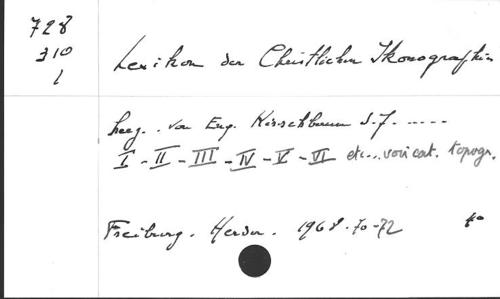 728
310
1
Lexikon der Christlichen Ikonographie
herg. von Eug. Kirschbaum S.J. .....
I - II - III - IV - V - VI etc... voir cat. topogr.
Freiburg. Herder. 1968-70-72 4°